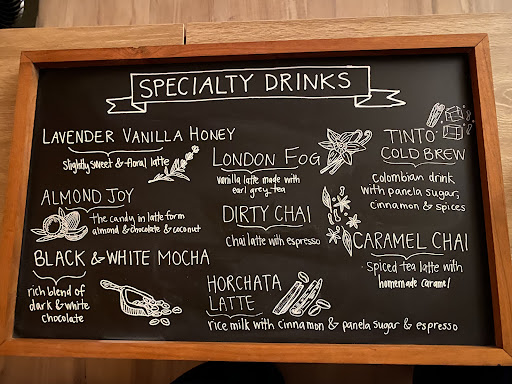 SPECIALTY DRINKS
LAVENDER VANILLA HONEY
slightly sweet & floral latte
ALMOND JOY
the candy in latte form
almond & chocolate & coconut
BLACK & WHITE MOCHA
rich blend of
dark & white
chocolate
LONDON FOG
vanilla latte made with
earl grey tea
DIRTY CHAI
chai latte with espresso
HORCHATA
LATTE
rice milk with cinnamon & panela sugar & espresso
TINTO
COLD BREW
colombian drink
with panela sugar,
cinnamon & spices
CARAMEL CHAI
spiced tea latte with
homemade caramel